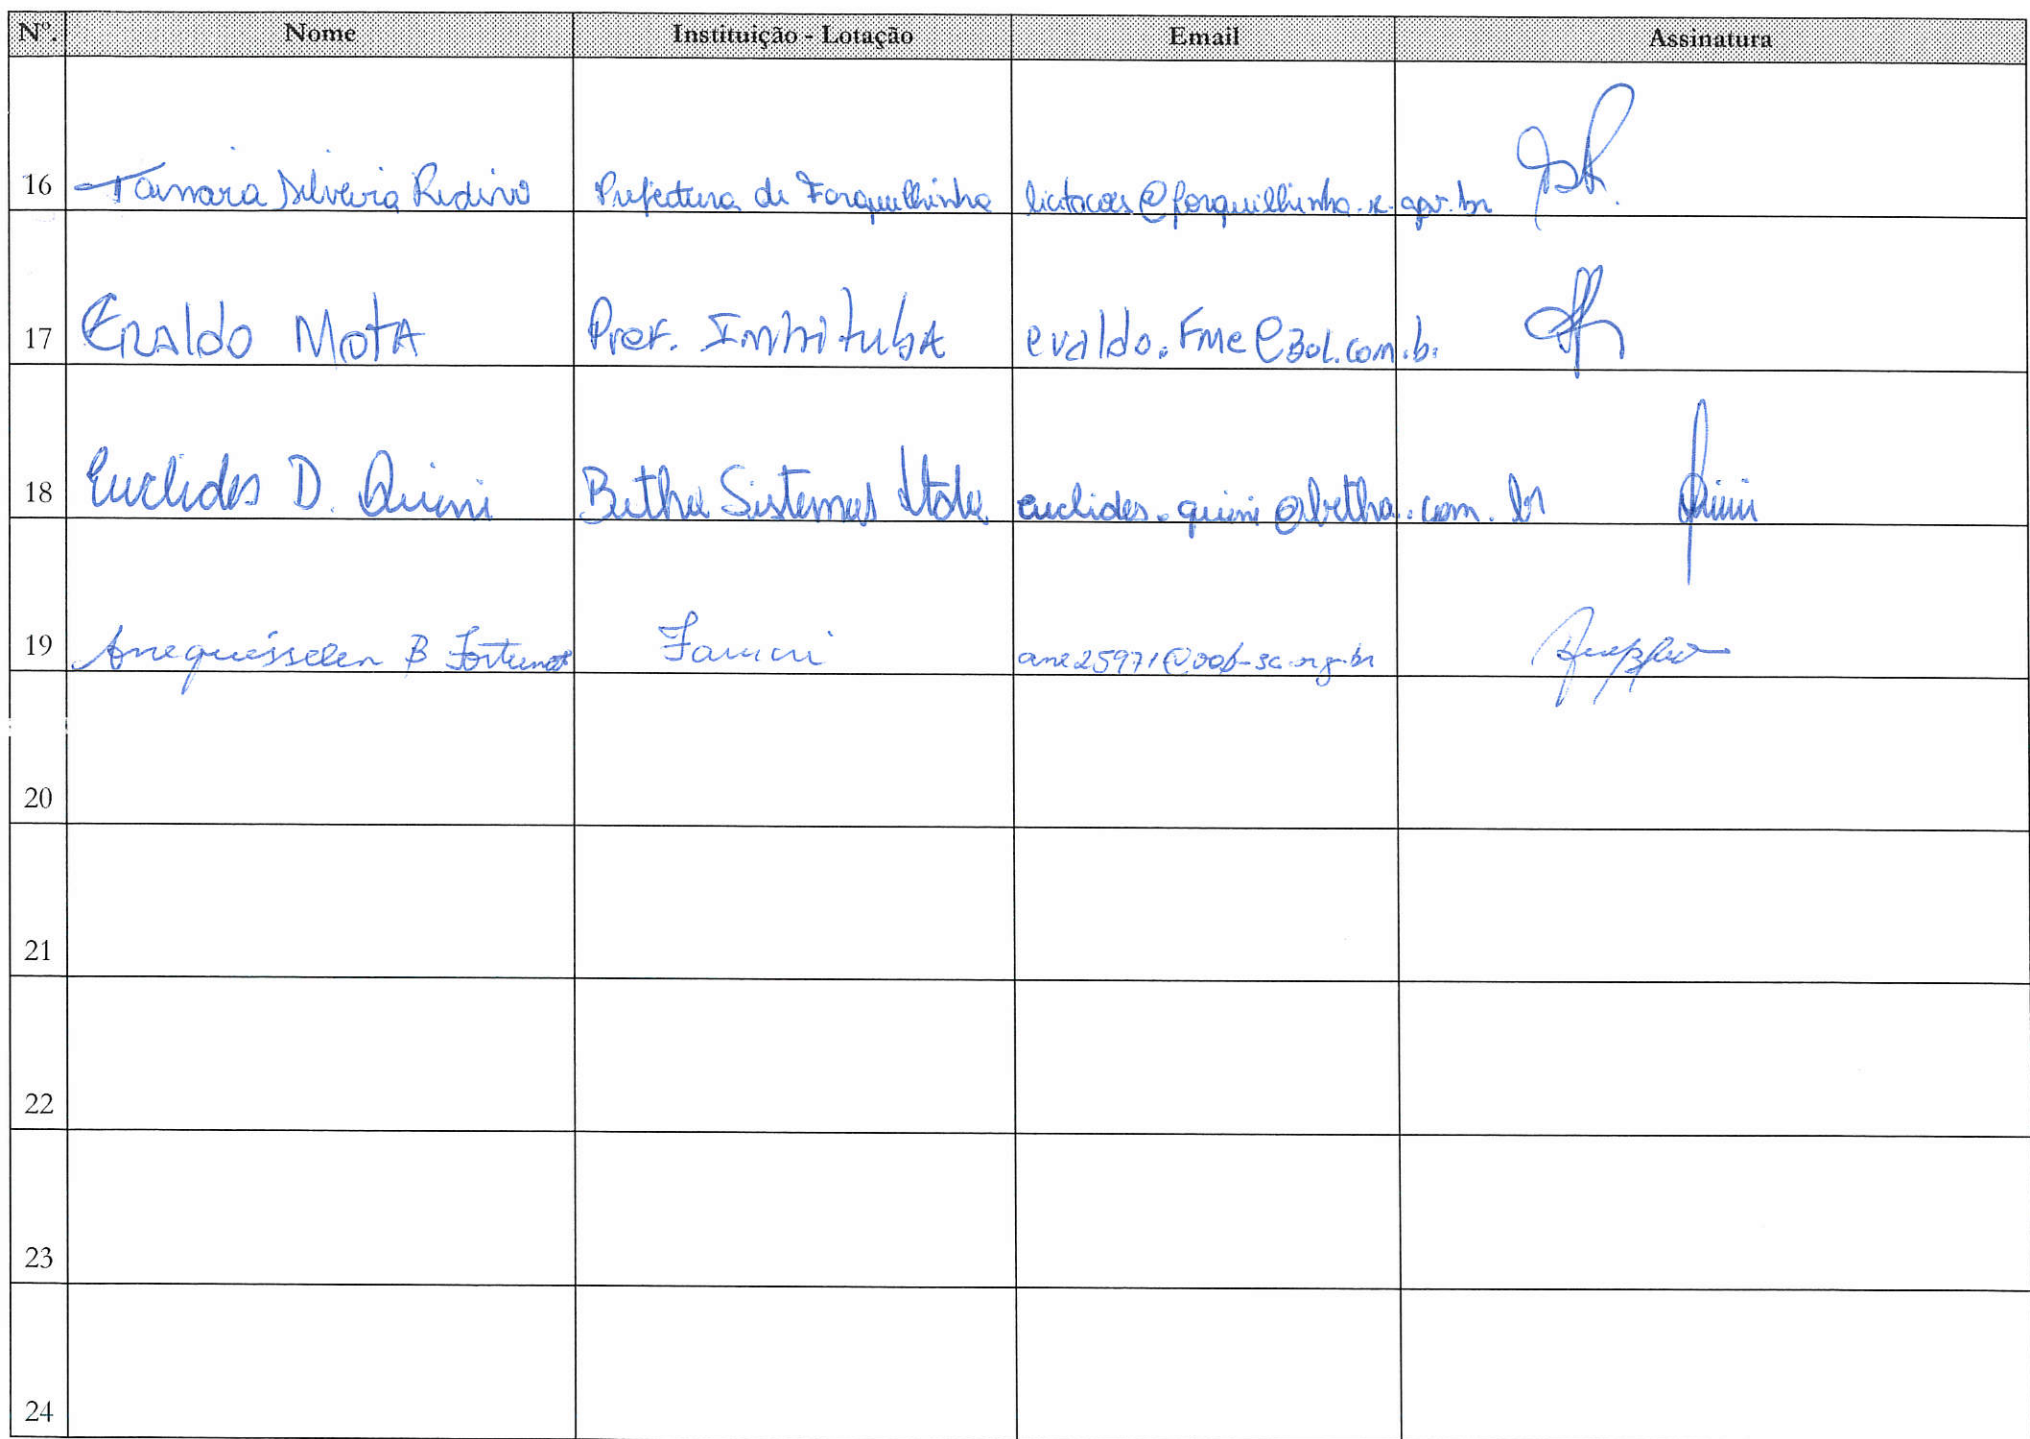 Nº. Nome Instituição - Lotação Email Assinatura
16 Tamara Silveira Redivo Prefeitura de Forquilhinha licitacoes@forquilhinha.sc.gov.br
17 Evaldo MotA Pref. ImbitubA evaldo.fme@bol.com.b
18 Euclides D. Quini Betha Sistemas Ltda euclides.quini@betha.com.br Quini
19 Anequésselen B Fortunato ane25971@oab-sc.org.br
20
21
22
23
24